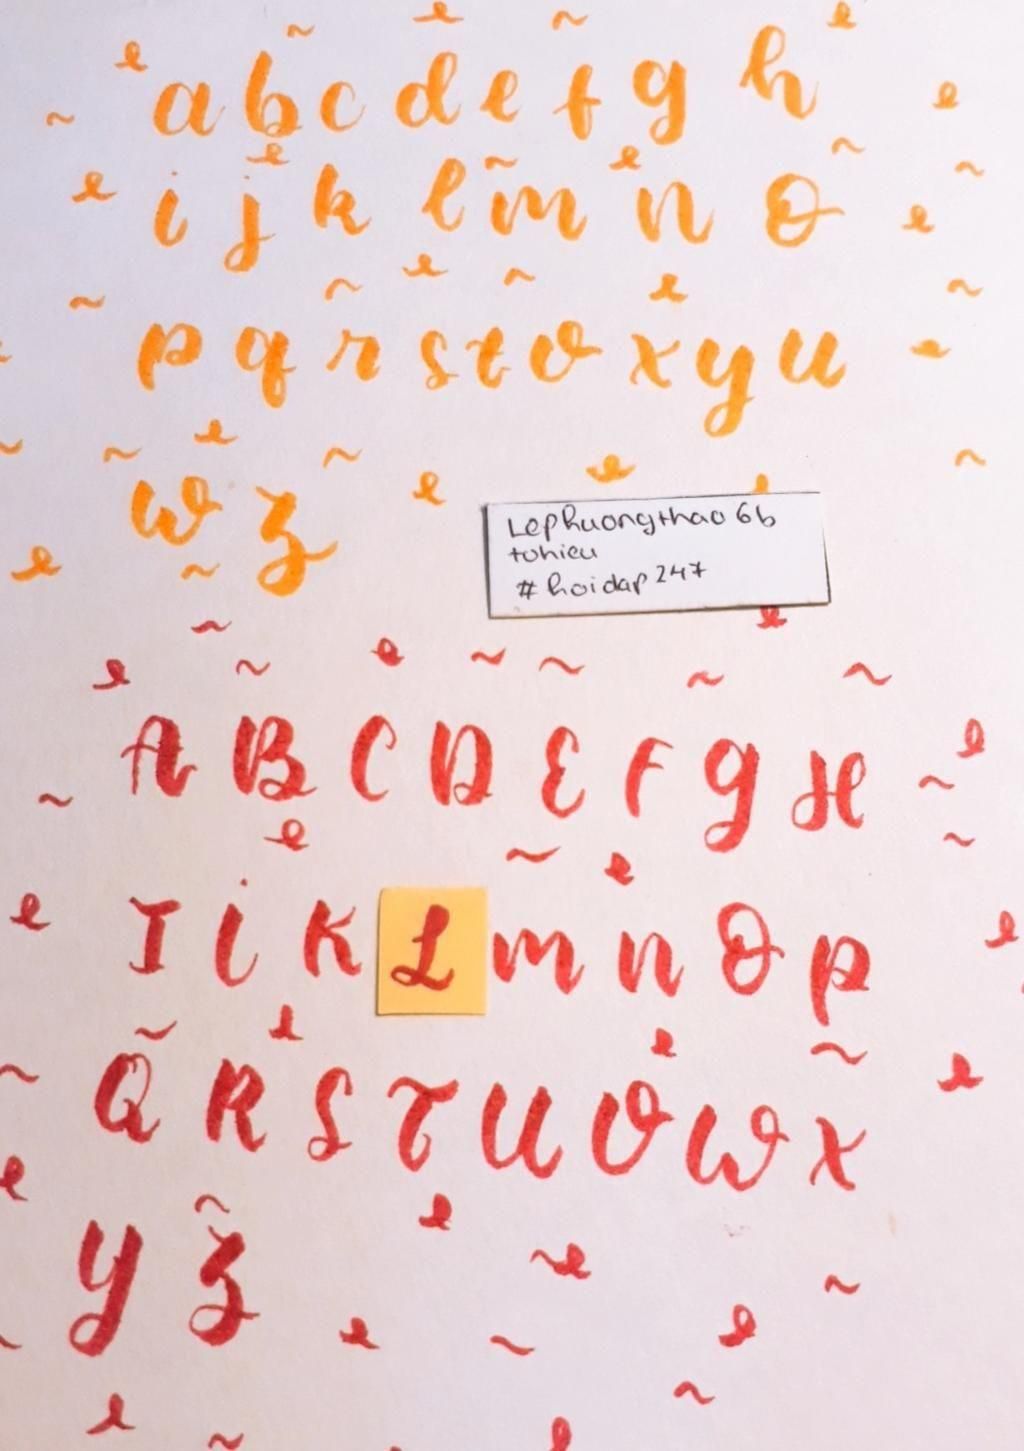 a b c d e f g h
i j k l m n o
p q r s t v x y u
w z
Lephuongthao 6b
tohieu
# hoidap 247
A B C D E F G H
I i K L m n O p
Q R S T U V W X
Y Z